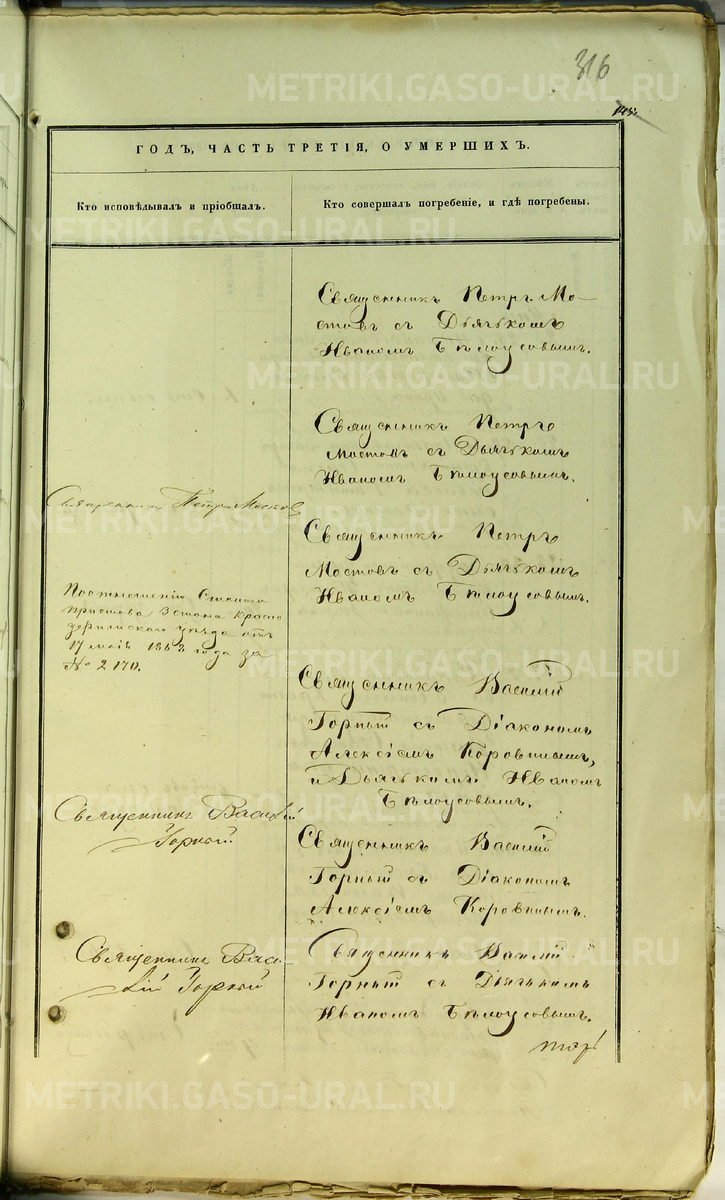 316
ГОДЪ, ЧАСТЬ ТРЕТІЯ, О УМЕРШИХЪ.
Кто исповѣдывалъ и пріобщалъ.
Кто совершалъ погребеніе, и гдѣ погребены.
Священникъ Петръ Мо-
стовъ съ Дьячькомъ
Иваномъ Бѣлоусовымъ.
Священникъ Петръ
Мостовъ съ Дьячькомъ
Иваномъ Бѣлоусовымъ.
Священникъ Петръ Мостовъ
Священникъ Петръ
Мостовъ съ Дьячькомъ
Иваномъ Бѣлоусовымъ.
По отношенію Становаго
Пристава 3 стана Красно
уѣзда отъ
17 маія года за
№ 2170.
Священникъ Василій
Горный съ Діакономъ
Алексіемъ Коровинымъ,
и Дьячькомъ Иваномъ
Бѣлоусовымъ.
Священникъ Василій
Горный
Священникъ Василій
Горный съ Діакономъ
Алексіемъ Коровинымъ.
Священникъ Васи-
лій Горный
Священникъ Василій
Горный съ Дьячькомъ
Иваномъ Бѣлоусовымъ.
METRIKI.GASO-URAL.RU